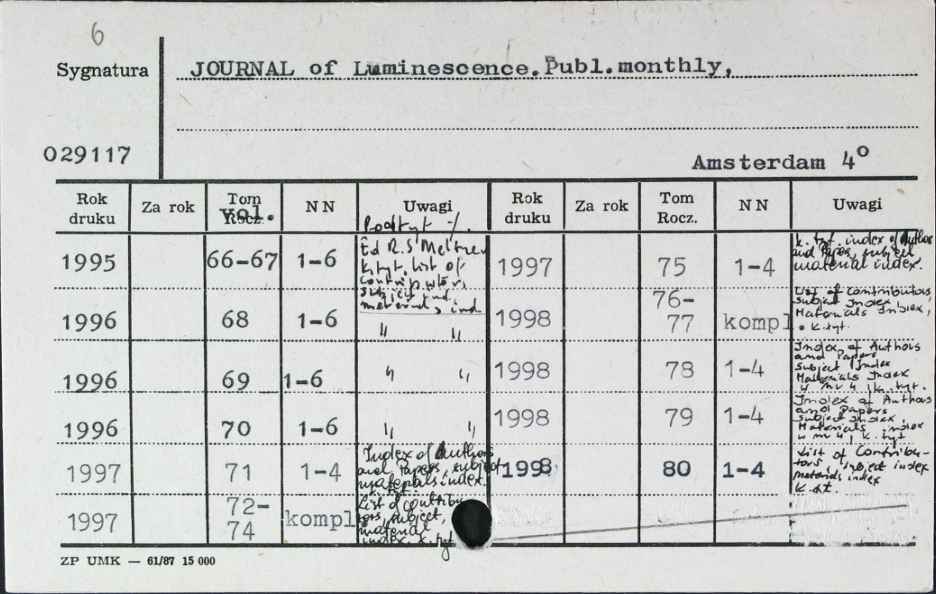 6
Sygnatura
JOURNAL of Luminescence.Publ.monthly,
029117
Amsterdam 4°
Rok druku Za rok Tom Rocz. vol. NN Uwagi Rok druku Za rok Tom Rocz. NN Uwagi
Podtyt
Ed R.S Meltzer
k.tyt. list of
subject ind
material, ind
1995 66-67 1-6
1996 68 1-6 " "
1996 69 1-6 " "
1996 70 1-6 " "
1997 71 1-4 Index of Authors
and Papers, subject
materials index.
k. tyt.
1997 72-
74 kompl List of contribu
tors, subject,
material
index. k. tyt
1997 75 1-4 k. tyt. index of Author
and Papers, subject
material index.
1998 76-
77 kompl List of contributors,
Subject Index,
Materials Index,
k. tyt.
1998 78 1-4 Index of Authors
and Papers
Subject Index
Materials Index
k. tyt.
1998 79 1-4 Index of Authors
and Papers
Subject Index
Materials index
k. tyt
1998 80 1-4 List of Contribu-
tors, subject index
materials index
k. tyt.
ZP UMK — 61/87 15 000